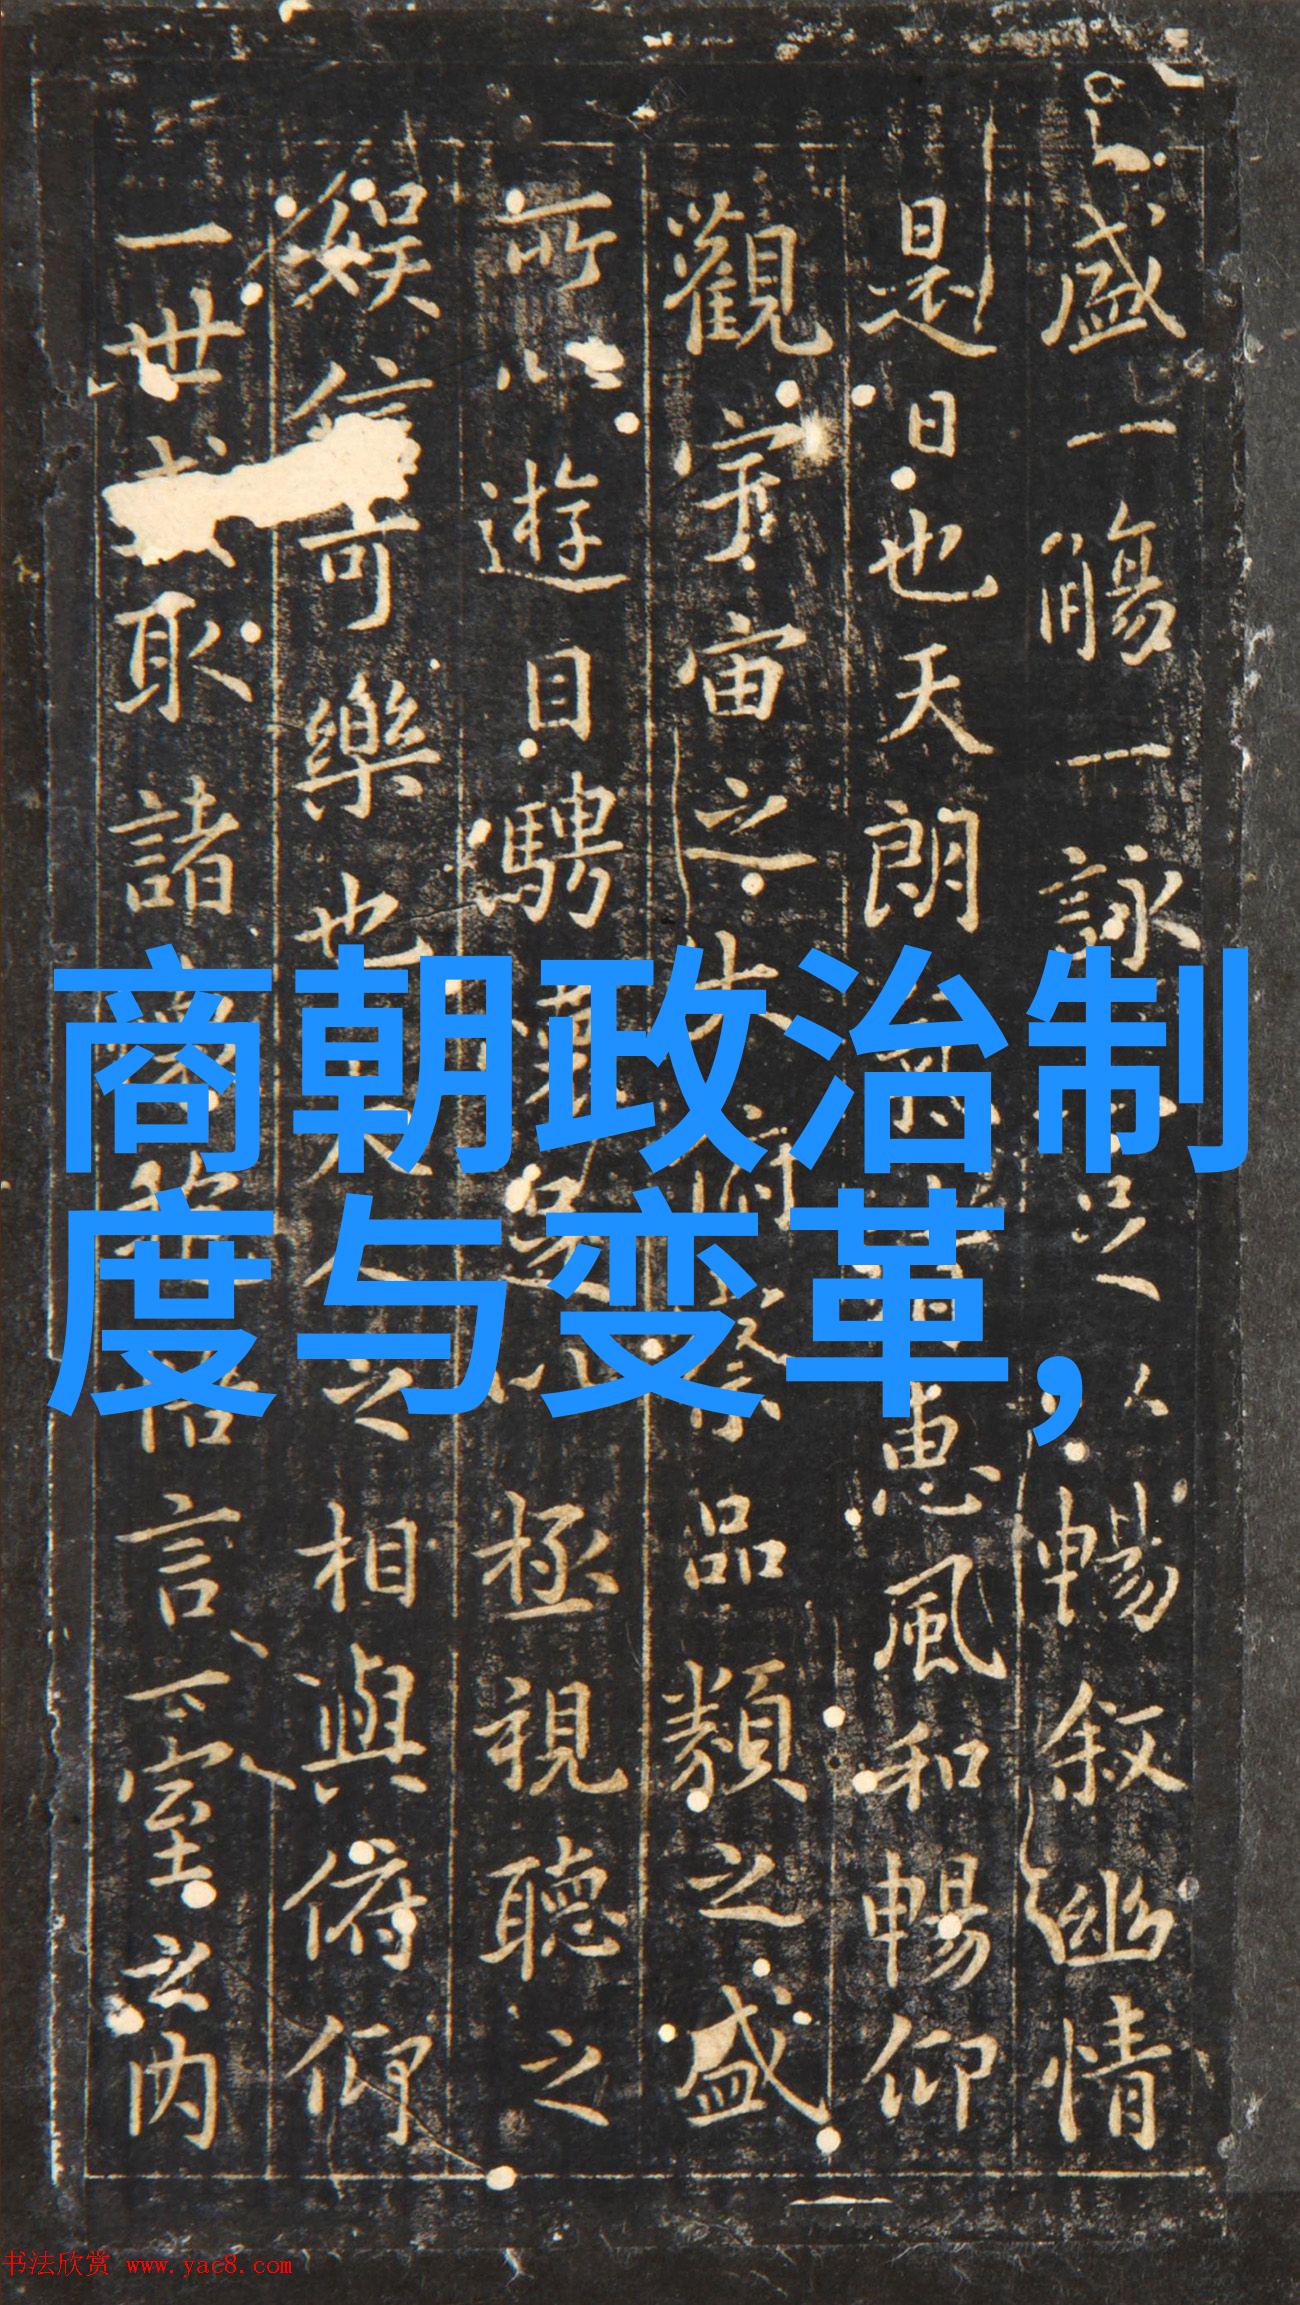 盛一觴一詠足以暢叙幽情
是日也天朗惠風和暢仰
觀宇宙之大俯察品類之盛
所以遊目騁懷足以極視聽之
娛信可樂也夫人之相與俯仰
一世取諸悟言一室之内
商朝政治制
度与变革,
书法欣赏 www.yac8.com